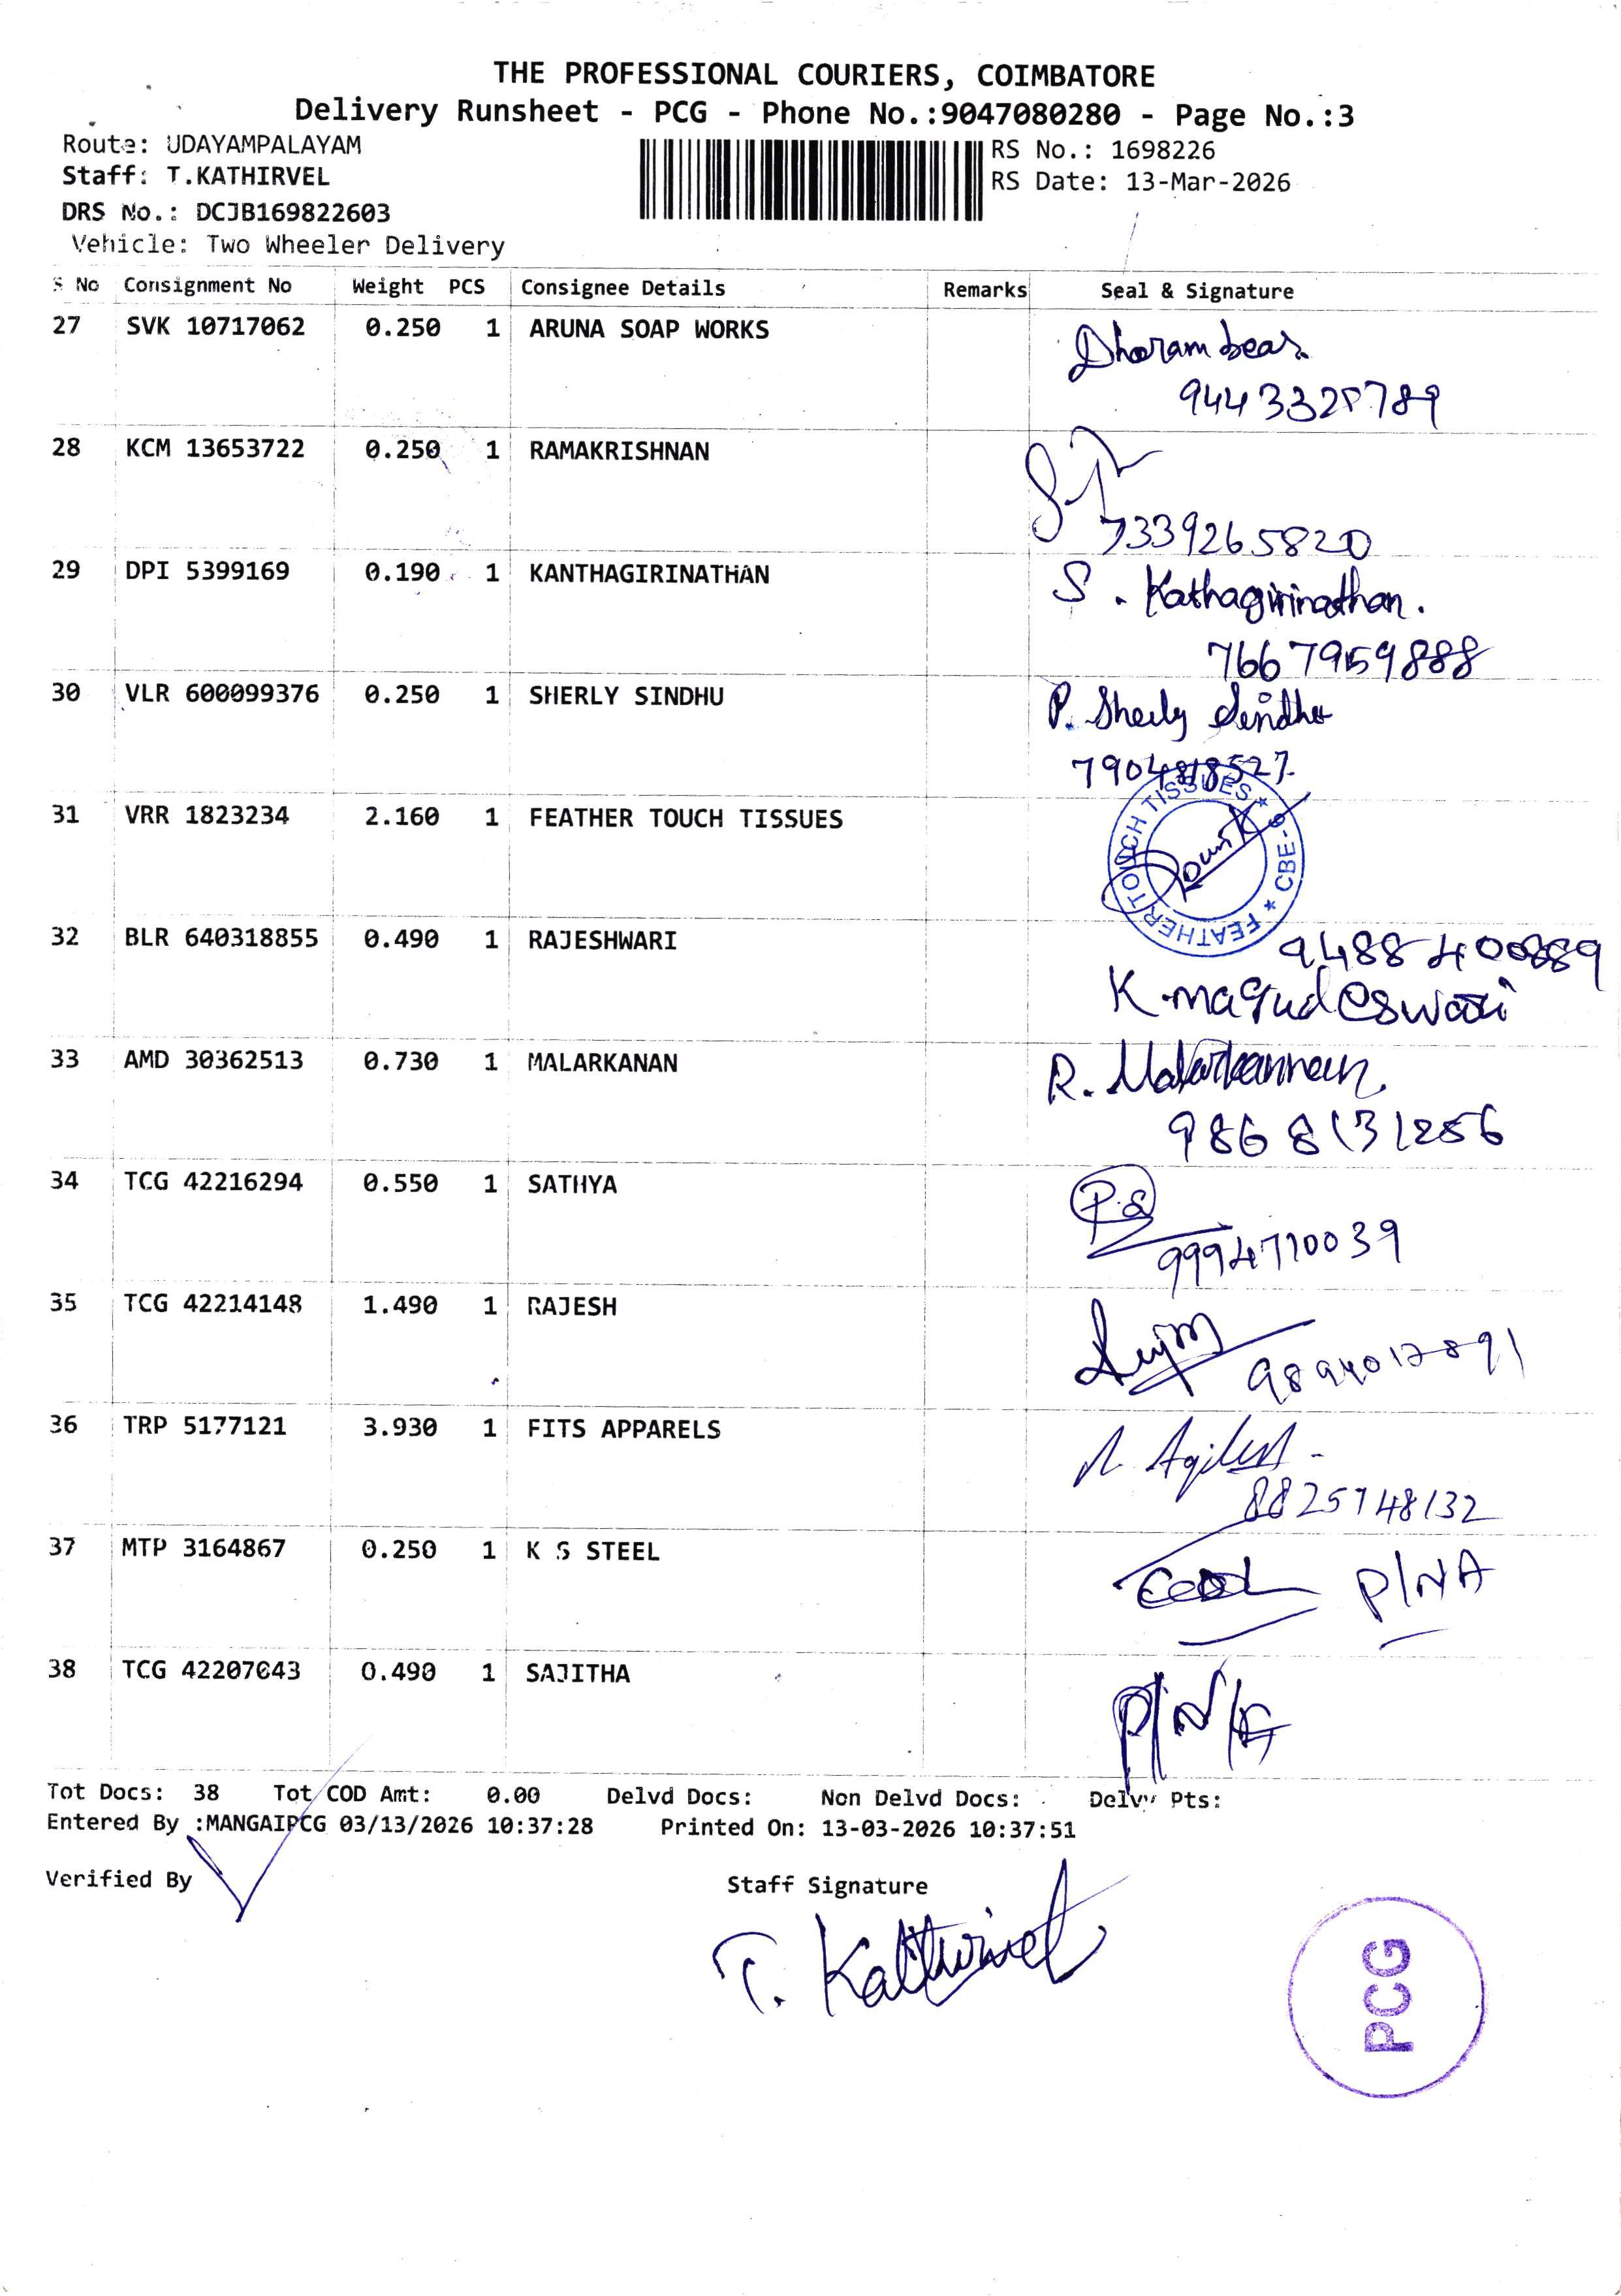 THE PROFESSIONAL COURIERS, COIMBATORE
Delivery Runsheet - PCG - Phone No.:9047080280 - Page No.:3
Route: UDAYAMPALAYAM
RS No.: 1698226
Staff: T.KATHIRVEL
RS Date: 13-Mar-2026
DRS No.: DCJB169822603
Vehicle: Two Wheeler Delivery
S No Consignment No Weight PCS Consignee Details Remarks Seal & Signature
27 SVK 10717062 0.250 1 ARUNA SOAP WORKS
28 KCM 13653722 0.250 1 RAMAKRISHNAN
7339265820
29 DPI 5399169 0.190 1 KANTHAGIRINATHAN
S. Kathagirinathan.
30 VLR 600099376 0.250 1 SHERLY SINDHU
P. Sherly Sindhu
7904818527
31 VRR 1823234 2.160 1 FEATHER TOUCH TISSUES
FEATHER TOUCH TISSUES * CBE-6 *
32 BLR 640318855 0.490 1 RAJESHWARI
K. magudeswari
33 AMD 30362513 0.730 1 MALARKANAN
R. Malarkannan
9868131256
34 TCG 42216294 0.550 1 SATHYA
P.S
9994710039
35 TCG 42214148 1.490 1 RAJESH
9894012891
36 TRP 5177121 3.930 1 FITS APPARELS
8825748132
37 MTP 3164867 0.250 1 K S STEEL
P/NA
38 TCG 42207043 0.490 1 SAJITHA
P/N/A
Tot Docs: 38 Tot COD Amt: 0.00 Delvd Docs: Non Delvd Docs: Delvy Pts:
Entered By :MANGAIPCG 03/13/2026 10:37:28 Printed On: 13-03-2026 10:37:51
Verified By
Staff Signature
T. Kathirvel
PCG